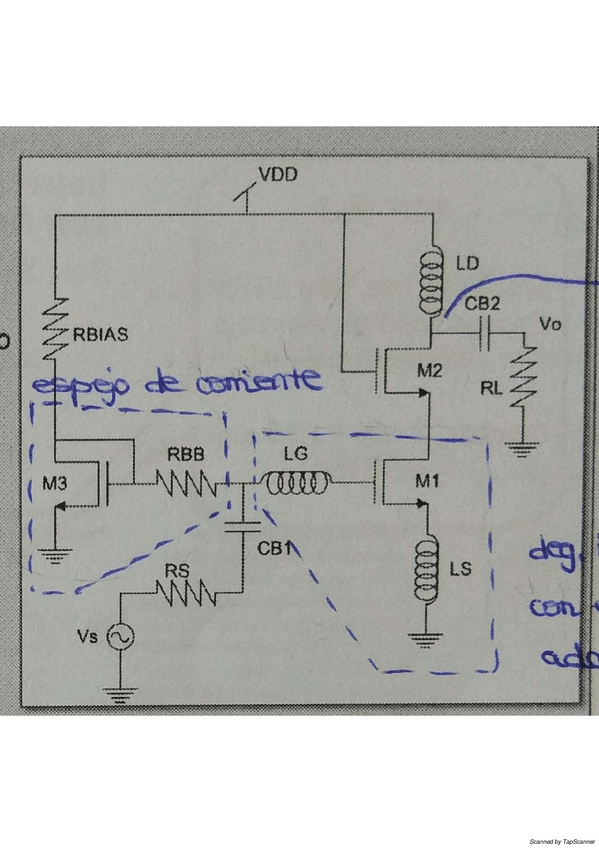 VDD
LD
CB2
Vo
RBIAS
M2
RL
espejo de corriente
RBB
LG
M3
M1
CB1
RS
LS
deg.
Vs
con
Scanned by TapScanner